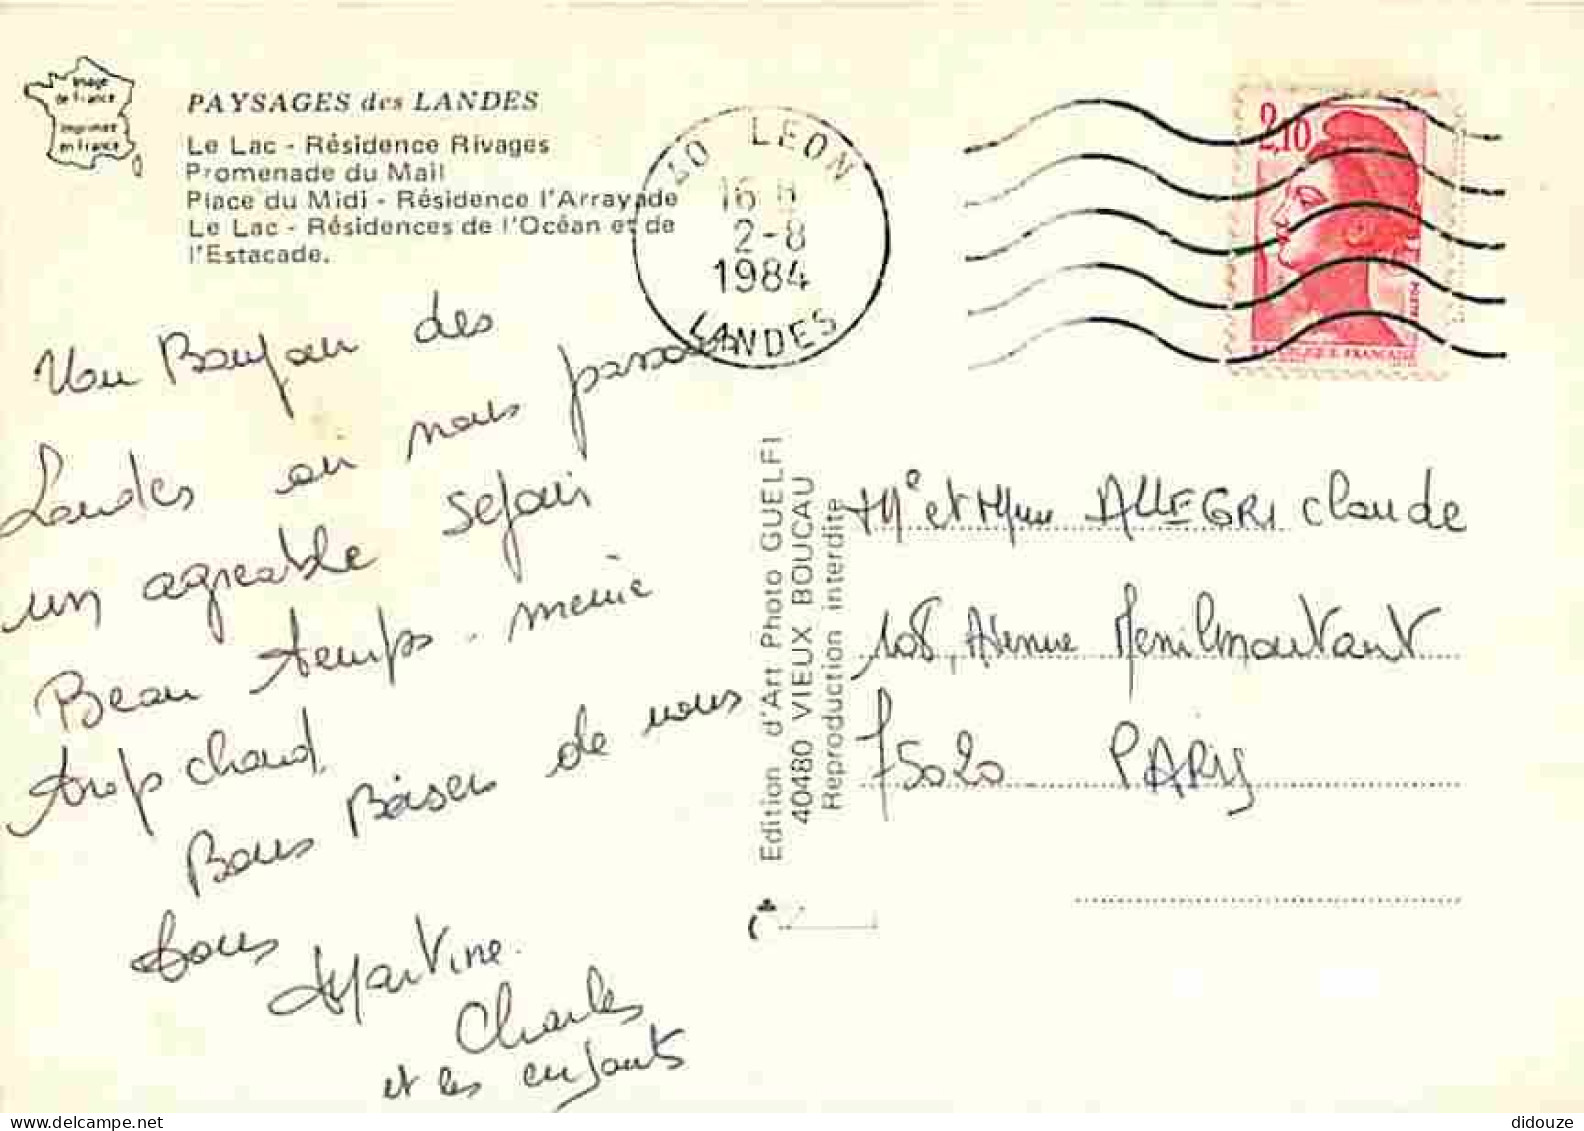 Image
de France
imprimée
en France
PAYSAGES des LANDES
Le Lac - Résidence Rivages
Promenade du Mail
Place du Midi - Résidence l'Arrayade
Le Lac - Résidences de l'Océan et de
l'Estacade.
40 LEON
16 H
2-8
1984
LANDES
2,10
REPUBLIQUE FRANCAISE
Un Bonjour des
Landes où nous passons
un agréable séjour
Beau temps. même
trop chaud.
Bons Baisers de nous
tous
Martine.
Charles
et les enfants
Edition d'Art Photo GUELFI
40480 VIEUX BOUCAU
Reproduction interdite
Mr et Mme ALLEGRI Claude
108, Avenue Menilmontant
75020 PARIS
delcampe.net
didouze